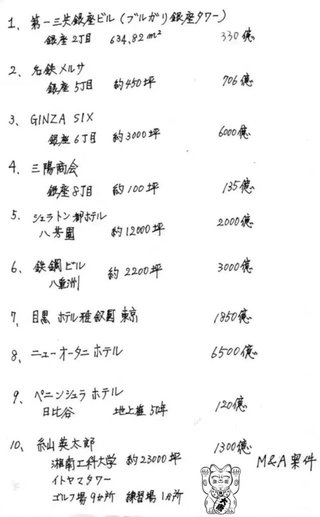 1、第一三共銀座ビル(ブルガリ銀座タワー)
銀座2丁目 634.82m² 330億
2、名鉄メルサ
銀座5丁目 約450坪 706億
3、GINZA SIX
銀座6丁目 約3000坪 6000億
4、三陽商会
銀座8丁目 約100坪 135億
5、シェラトン都ホテル 2000億
八芳園 約12000坪
6、鉄鋼ビル 3000億
八重洲 約2200坪
7、目黒 ホテル雅叙園 東京 1850億
8、ニューオータニホテル 6500億
9、ペニンシュラホテル
日比谷 地上権50年 120億
10、糸山英太郎 1300億
湘南工科大学 約23000坪 M&A案件
イトヤマタワー
ゴルフ場9カ所 練習場1カ所